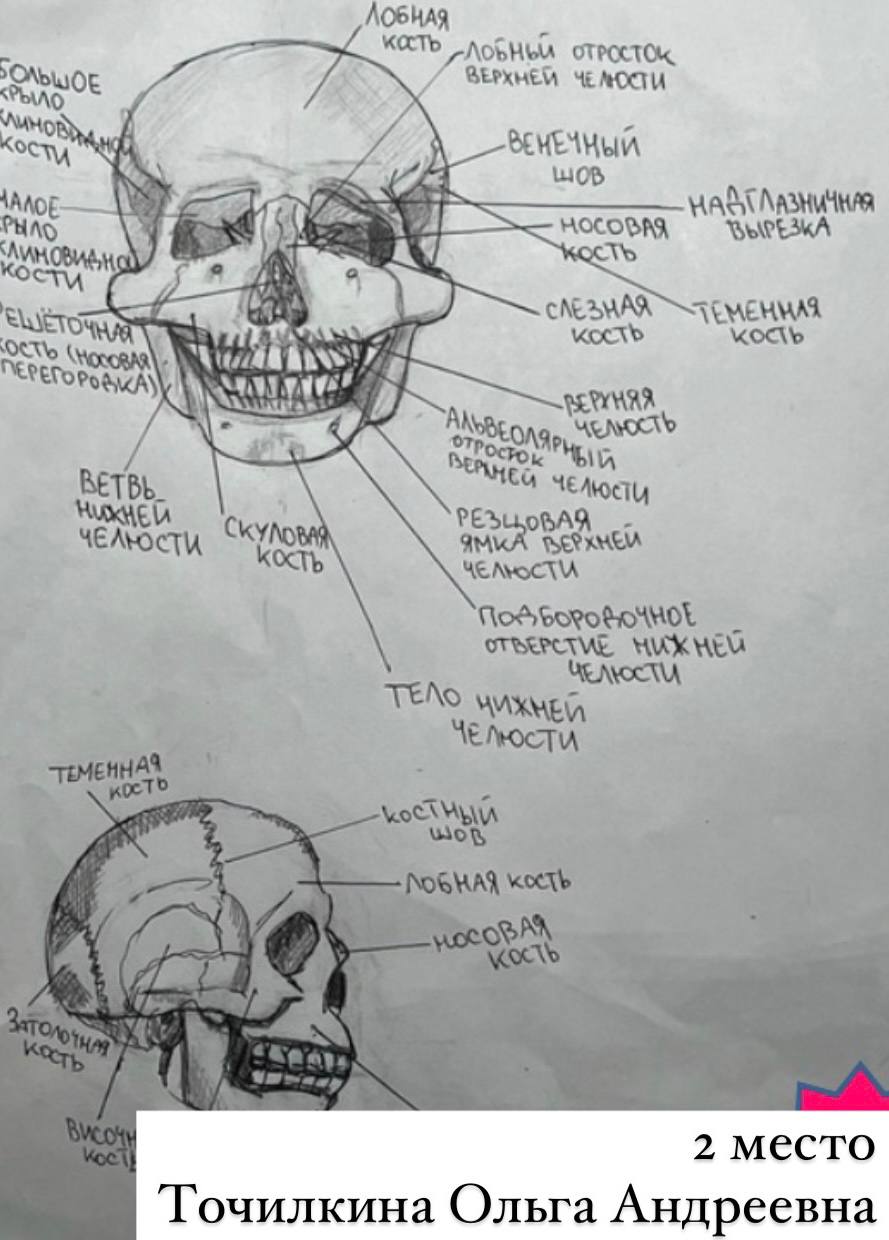 ЛОБНАЯ
КОСТЬ
ЛОБНЫЙ ОТРОСТОК
ВЕРХНЕЙ ЧЕЛЮСТИ
БОЛЬШОЕ
КРЫЛО
КЛИНОВИДНОЙ
КОСТИ
ВЕНЕЧНЫЙ
ШОВ
МАЛОЕ
КРЫЛО
КЛИНОВИДНОЙ
КОСТИ
НАДГЛАЗНИЧНАЯ
ВЫРЕЗКА
НОСОВАЯ
КОСТЬ
СЛЕЗНАЯ
КОСТЬ
ТЕМЕННАЯ
КОСТЬ
РЕШЁТОЧНАЯ
КОСТЬ (НОСОВАЯ
ПЕРЕГОРОДКА)
ВЕРХНЯЯ
ЧЕЛЮСТЬ
АЛЬВЕОЛЯРНЫЙ
ОТРОСТОК
ВЕРХНЕЙ ЧЕЛЮСТИ
ВЕТВЬ
НИЖНЕЙ
ЧЕЛЮСТИ
СКУЛОВАЯ
КОСТЬ
РЕЗЦОВАЯ
ЯМКА ВЕРХНЕЙ
ЧЕЛЮСТИ
ПОДБОРОДОЧНОЕ
ОТВЕРСТИЕ НИЖНЕЙ
ЧЕЛЮСТИ
ТЕЛО НИЖНЕЙ
ЧЕЛЮСТИ
ТЕМЕННАЯ
КОСТЬ
КОСТНЫЙ
ШОВ
ЛОБНАЯ КОСТЬ
НОСОВАЯ
КОСТЬ
ЗАТОЛОЧНАЯ
КОСТЬ
ВИСОЧН
КОСТЬ
2 место
Точилкина Ольга Андреевна